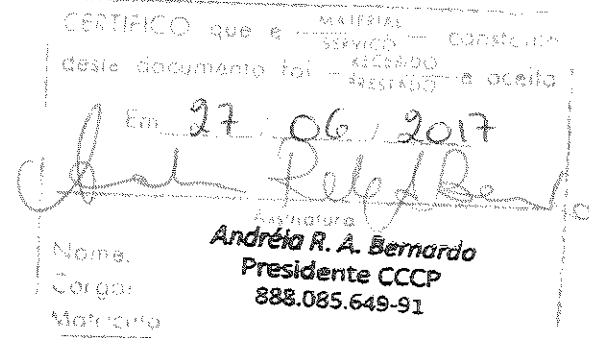 CERTIFICO que e MATERIAL SERVICO constante
deste documento foi RECEBIDO PRESTADO e aceito
Em 27 / 06 / 2017
Assinatura
Andréia R. A. Bernardo
Nome:
Presidente CCCP
Cargo:
888.085.649-91
Matricula